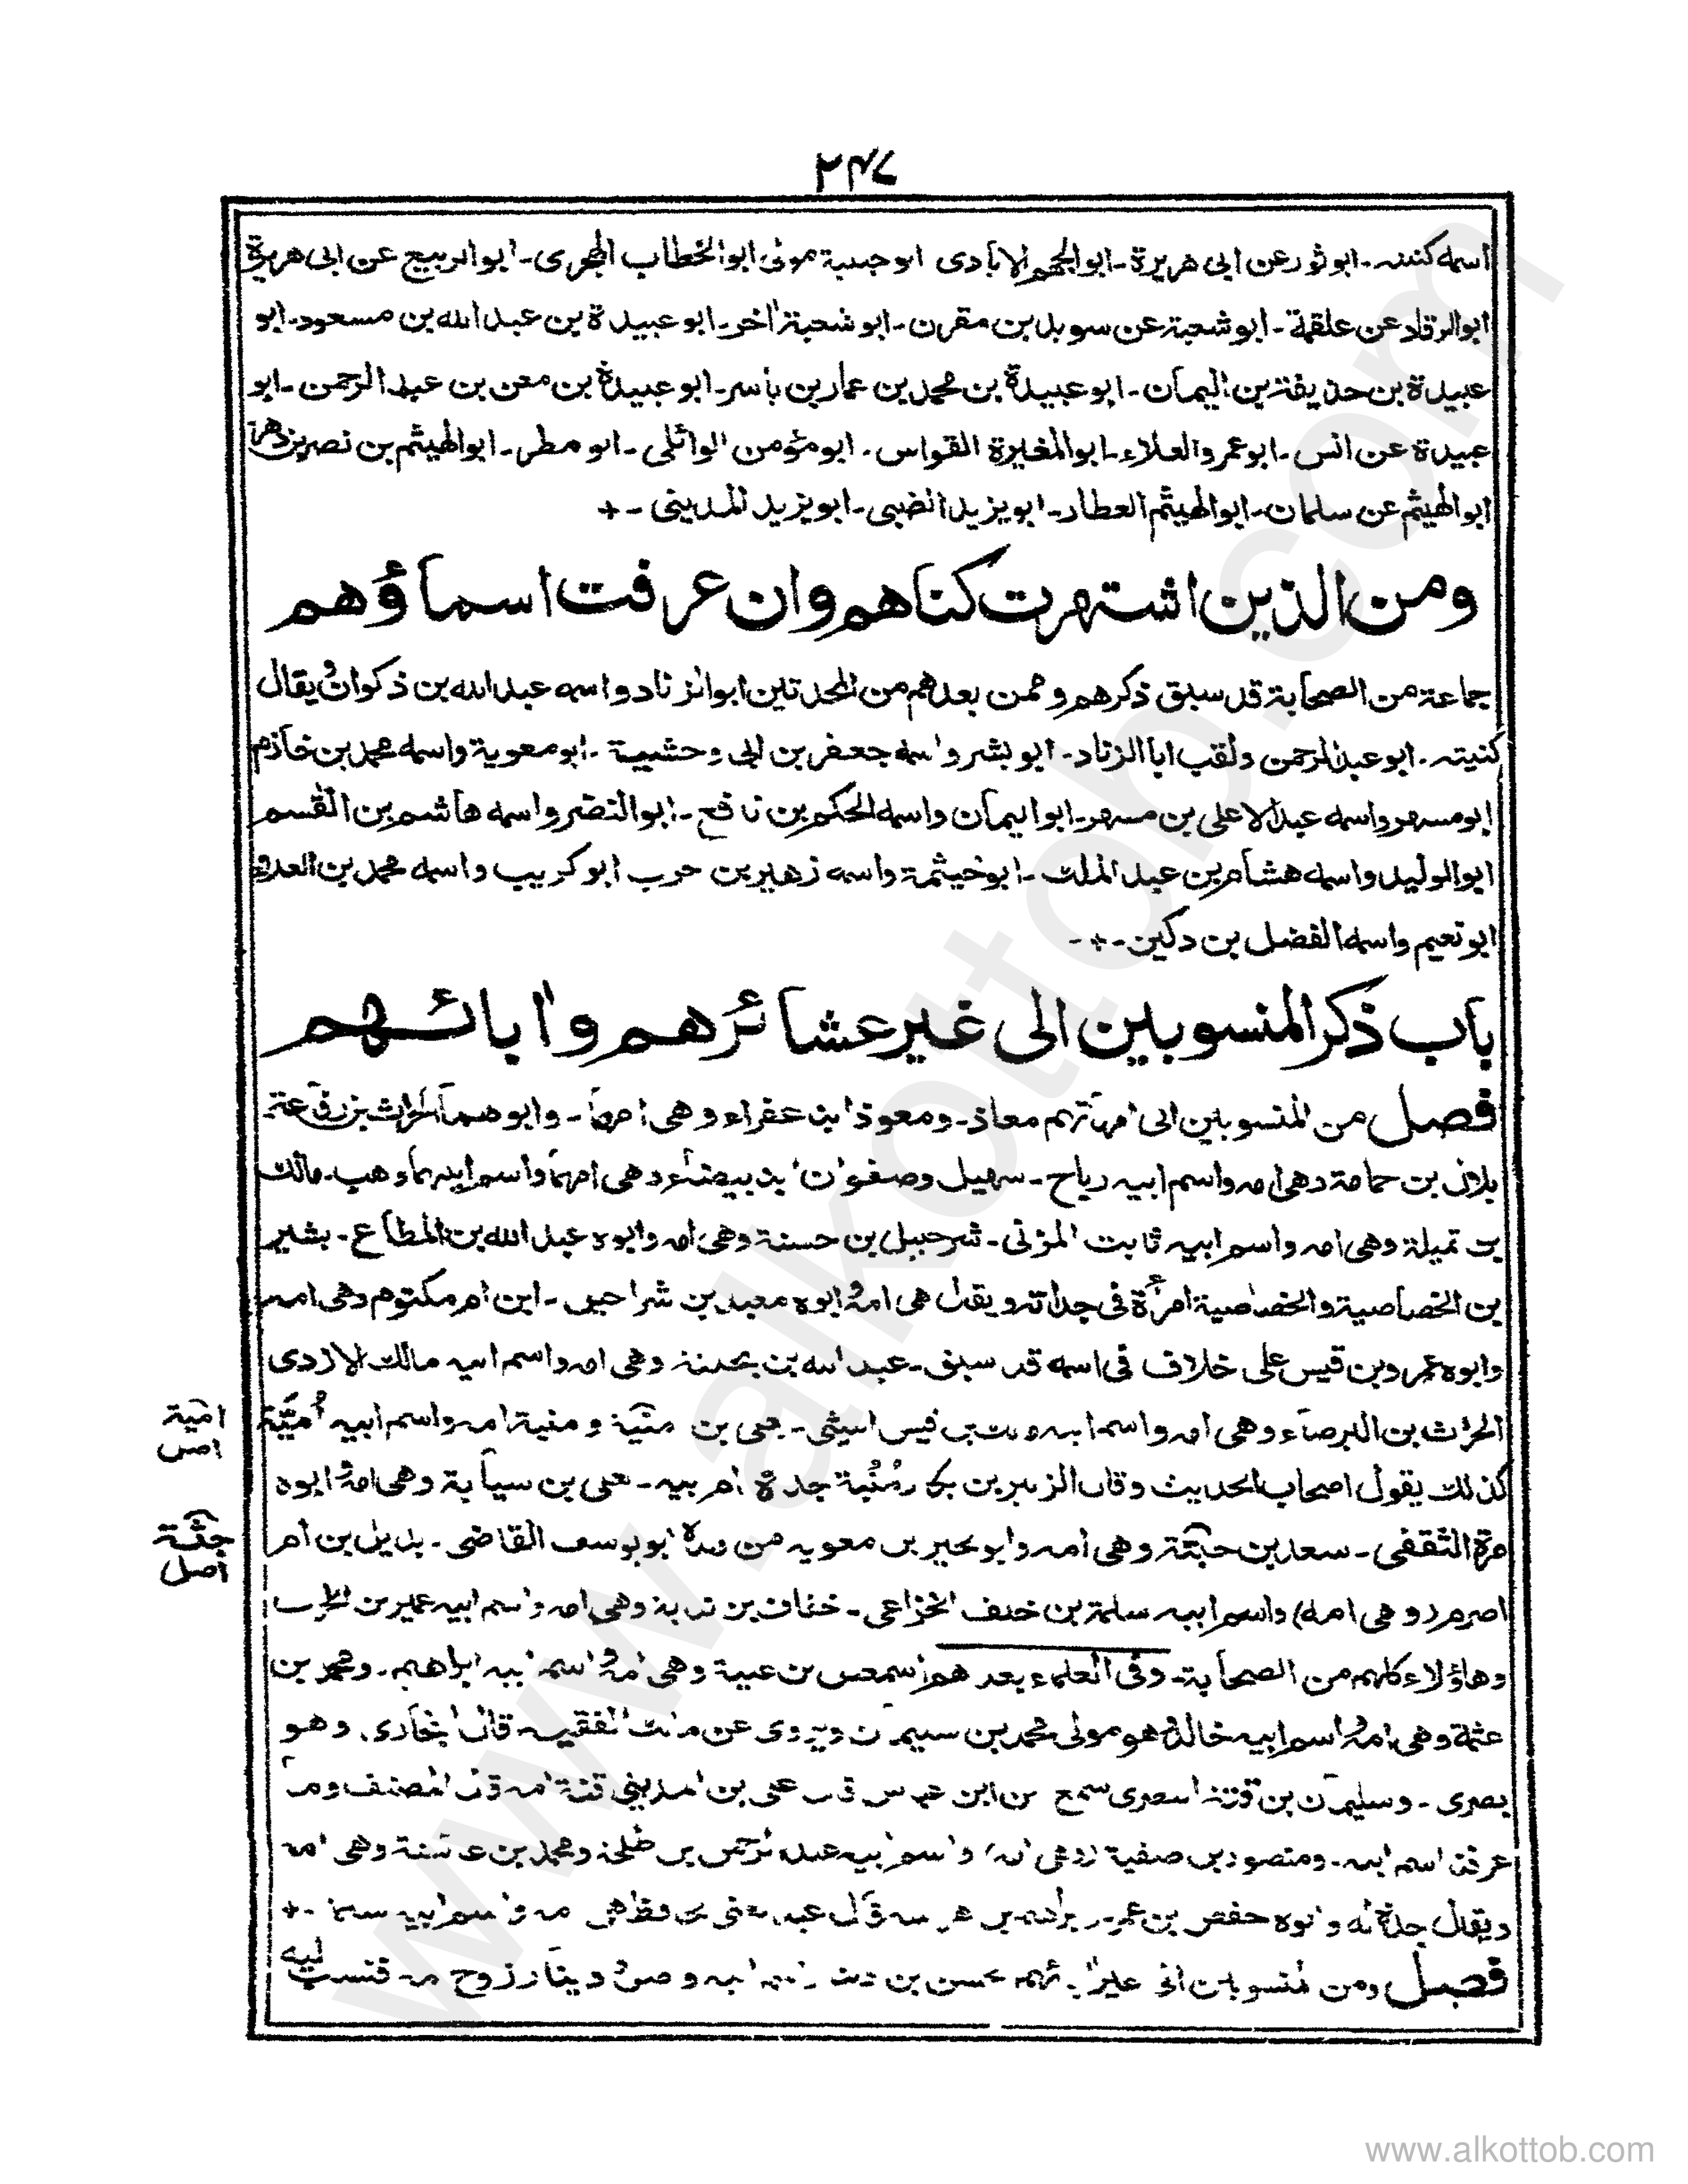 ٢٤٧
اسمه كنيته ـ ابو ثور عن ابى هريرة ـ ابو الجهم الايادى ابو حبيبة مولى ابو الخطاب الهجرى ـ ابو الربيع عن ابى هريرة
ابو الرقاد عن علقمة ـ ابو شعبة عن سويد بن مقرن ـ ابو شعبة اٰخر ـ ابو عبيدة بن عبد الله بن مسعود ـ ابو
عبيدة بن حذيفة بن اليمان ـ ابو عبيدة بن محمد بن عمار بن ياسر ـ ابو عبيدة بن معن بن عبد الرحمن ـ ابو
عبيدة عن انس ـ ابو عمرو العلاء ـ ابو المغيرة القواس ـ ابو مؤمن الوائلى ـ ابو مطر ـ ابو الهيثم بن نصر بن دهر
ابو الهيثم عن سلمان ـ ابو الهيثم العطار ـ ابو يزيد الضبى ـ ابو يزيد المدينى ـ +
ومن الذين اشتهرت كناهم وان عرفت اسماؤهم
جماعة من الصحابة قد سبق ذكرهم وممن بعدهم من المحدثين ابو الزناد واسمه عبد الله بن ذكوان ويقال
كنيته ـ ابو عبد الرحمن ولقب ابا الزناد ـ ابو بشر واسمه جعفر بن ابى وحشية ـ ابو معوية واسمه محمد بن خازم
ابو مسهر واسمه عبد الاعلى بن مسهر ـ ابو اليمان واسمه الحكم بن نافع ـ ابو النضر واسمه هاشم بن القٰسم
ابو الوليد واسمه هشام بن عبد الملك ـ ابو خيثمة واسمه زهير بن حرب ابو كريب واسمه محمد بن العلاء
ابو نعيم واسمه الفضل بن دكين ـ + ـ
باب ذكر المنسوبين الى غير عشائرهم واٰبائهم
فصل من المنسوبين الى امهاتهم معاذ ـ ومعوذ ابن عفراء وهى امهما ـ وابوهما الحارث بن رفاعة
بلال بن حمامة وهى امه واسم ابيه رباح ـ سهيل وصفوان ابن بيضاء وهى امهما واسم ابيهما وهب ـ مالك
بن تميلة وهى امه واسم ابيه ثابت المزنى ـ شرحبيل بن حسنة وهى امه وابوه عبد الله بن المطاع ـ بشير
بن الخصاصية والخصاصية امرأة فى جداته ويقال هى امه وابوه معبد بن شراحيل ـ ابن ام مكتوم وهى امه
وابوه عمرو بن قيس على خلاف فى اسمه قد سبق ـ عبد الله بن بحينة وهى امه واسم ابيه مالك الازدى
الحرث بن البرصاء وهى امه واسم ابيه مالك بن قيس الليثى ـ يعلى بن منية ومنية امه واسم ابيه اُميّة
كذلك يقول اصحاب الحديث وقال الزبير بن بكار منية جدة ام ابيه ـ يعلى بن سيابة وهى امه وابوه
مرة الثقفى ـ سعد بن حبتة وهى امه وابو بحير بن معوية من ولده ابو يوسف القاضى ـ بديل بن ام
اصرم (وهى امه) واسم ابيه سلمة بن خلف الخزاعى ـ خفاف بن ندبة وهى امه واسم ابيه عمير بن الحرث
وهاؤلاء كلهم من الصحابة ـ وفى العلماء بعدهم اسمعيل بن علية وهى امه واسم ابيه ابراهيم ـ ومحمد بن
عثمة وهى امه واسم ابيه خالد وهو مولى محمد بن سليمان ويروى عن مالك الفقيه قال البخارى وهو
بصرى ـ وسليمان بن قتة البصرى سمع من ابن عباس قال على بن المدينى قتة امه قال المصنف وما
عرفت اسم ابيه ـ ومنصور بن صفية (وهى امه) واسم ابيه عبد الرحمن بن طلحة ومحمد بن عائشة وهى امه
ويقال جدة له وابوه حفص بن عمر ـ ابراهيم بن هراسة قال عبد الغنى الحافظ هى امه واسم ابيه سلمة ـ +
فصل ومن المنسوبين الى غير اٰبائهم حسن بن دينار اسم ابيه واصل ودينار زوج امه فنسب اليه
امية
اصل
حبتة
اصل
www.alkottob.com